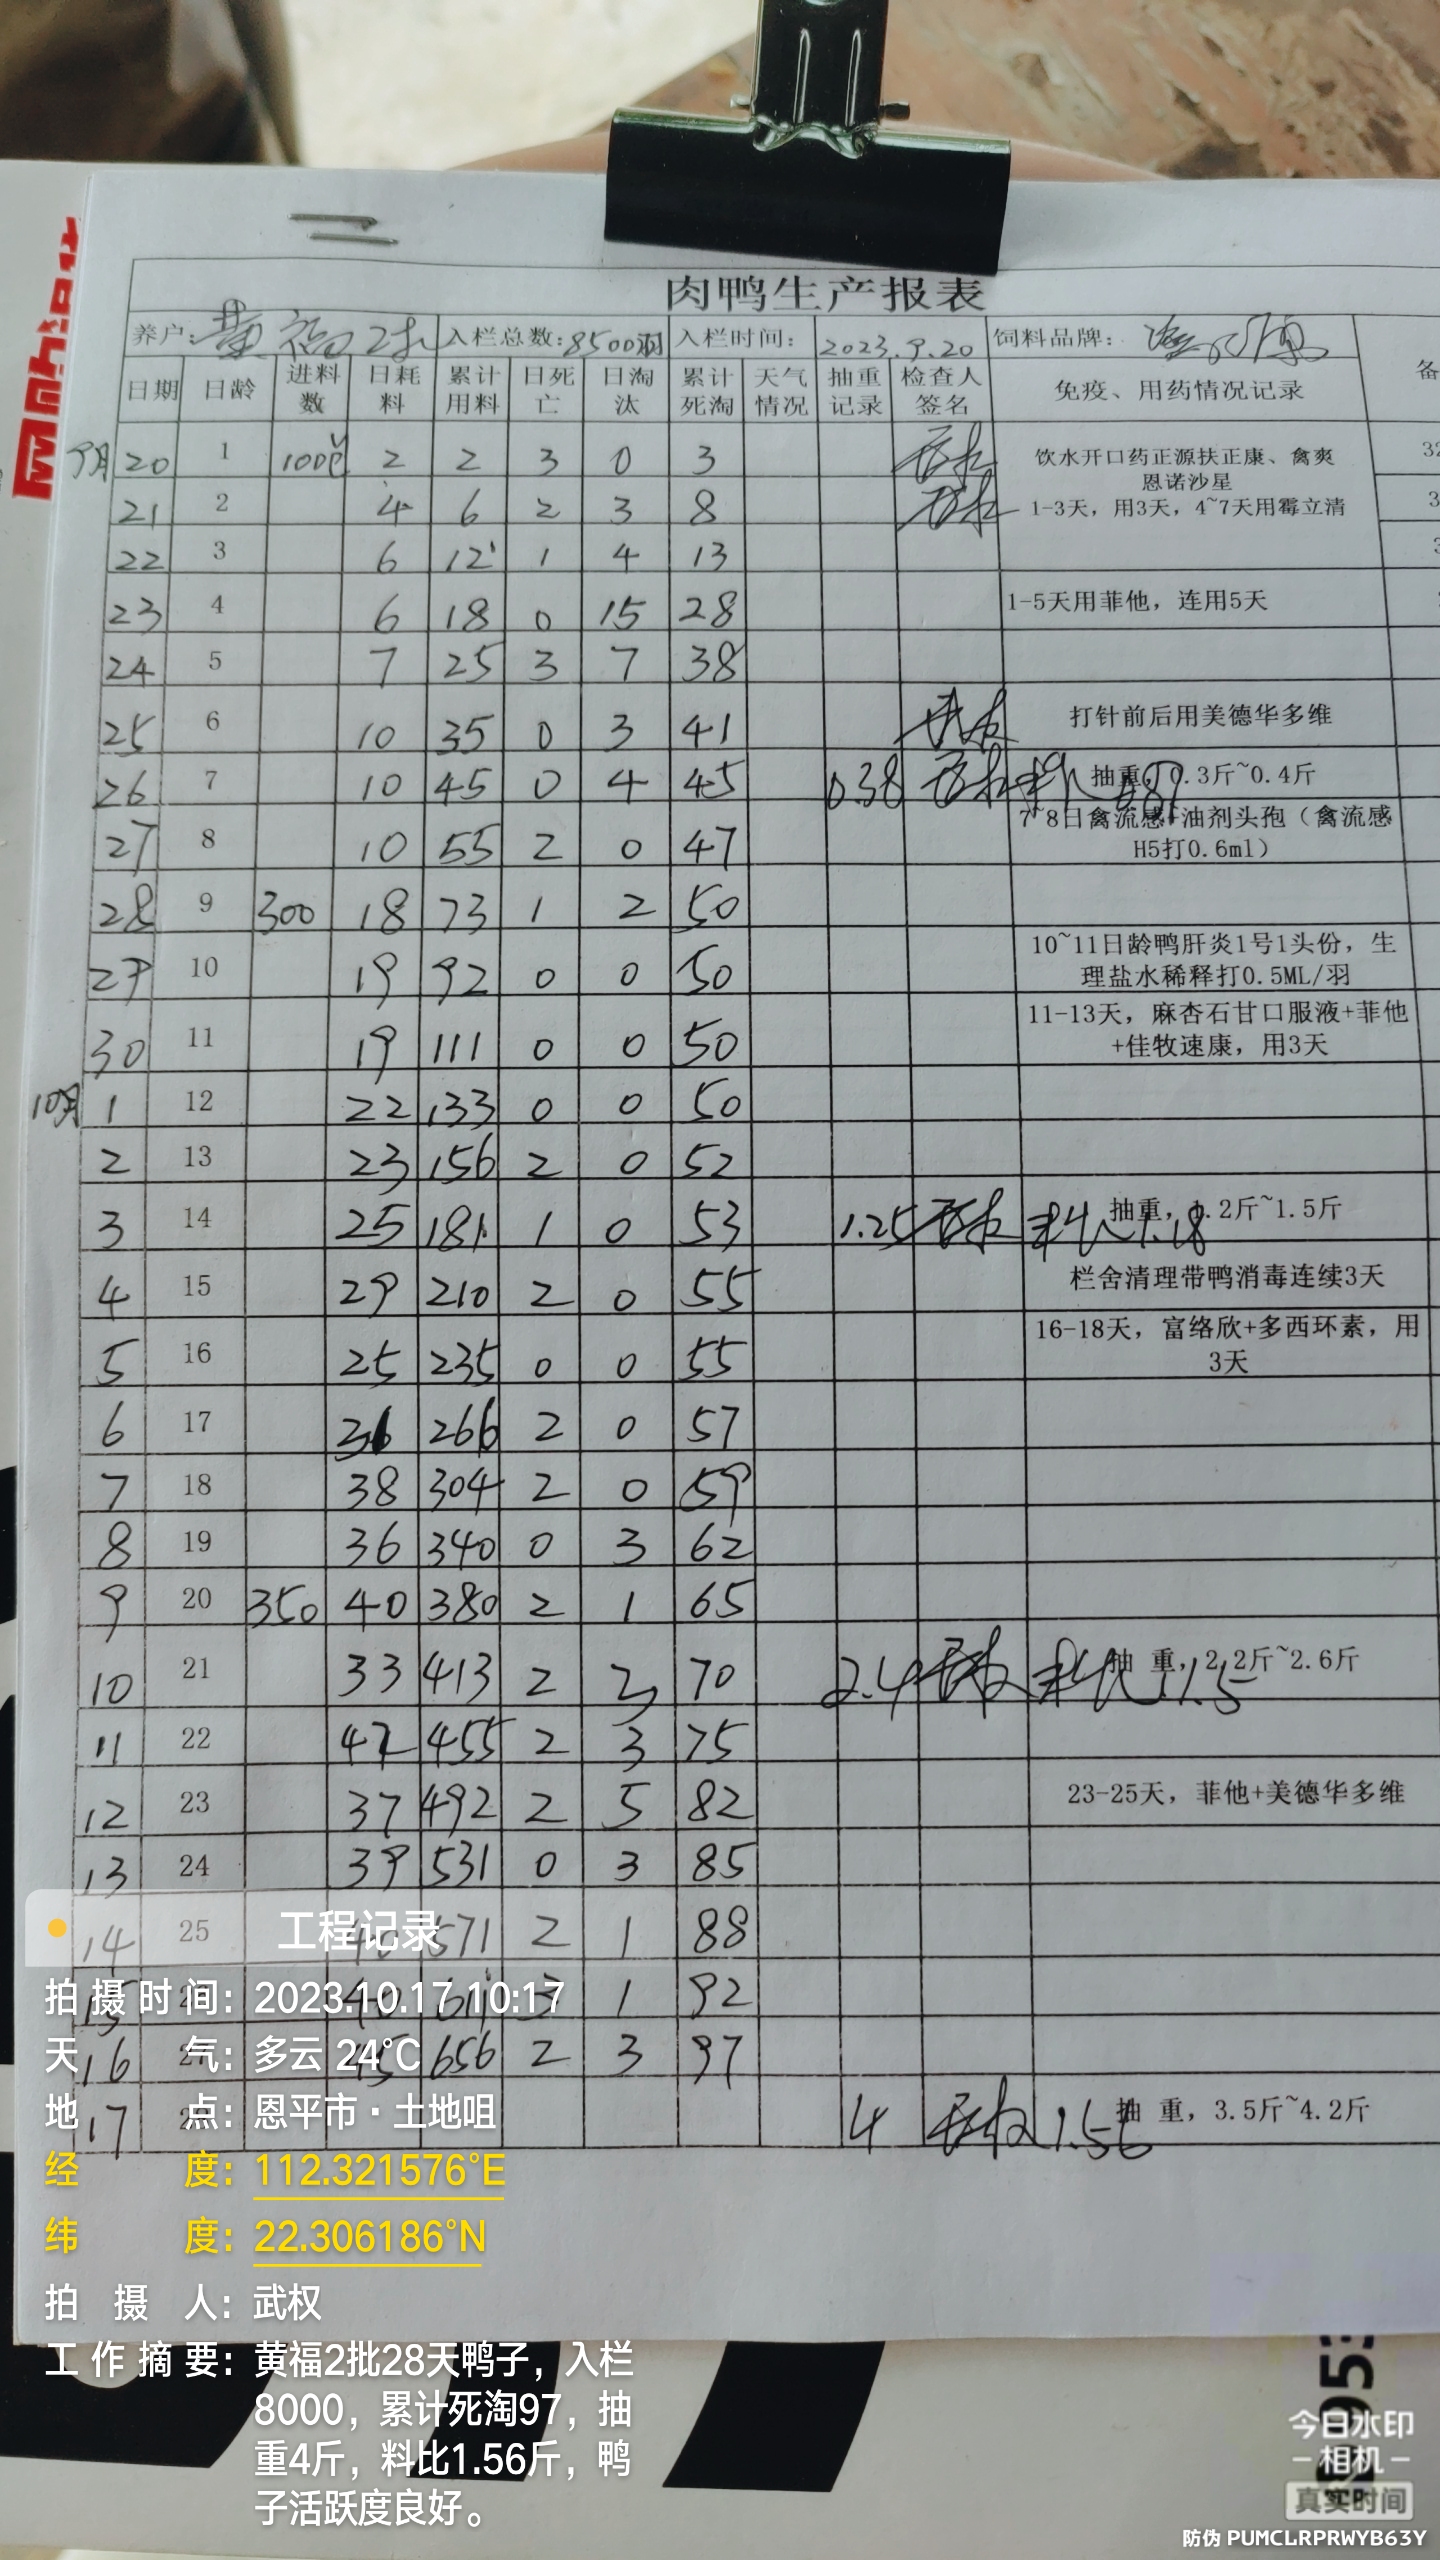 肉鸭生产报表
养户: 黄福2批 入栏总数: 8500羽 入栏时间: 2023.9.20 饲料品牌:
日期 日龄 进料数 日耗料 累计用料 日死亡 日淘汰 累计死淘 天气情况 抽重记录 检查人签名 免疫、用药情况记录 备
9月 20 1 100包 2 2 3 0 3 饮水开口药正源扶正康、禽爽
恩诺沙星
21 2 4 6 2 3 8 1-3天,用3天,4~7天用霉立清
22 3 6 12 1 4 13
23 4 6 18 0 15 28 1-5天用菲他,连用5天
24 5 7 25 3 7 38
25 6 10 35 0 3 41 武权 打针前后用美德华多维
26 7 10 45 0 4 45 0.38 武权 料比 0.87 抽重,0.3斤~0.4斤
27 8 10 55 2 0 47 7~8日禽流感+油剂头孢(禽流感
H5打0.6ml)
28 9 300 18 73 1 2 50
29 10 19 92 0 0 50 10~11日龄鸭肝炎1号1头份,生
理盐水稀释打0.5ML/羽
30 11 19 111 0 0 50 11-13天,麻杏石甘口服液+菲他
+佳牧速康,用3天
10月 1 12 22 133 0 0 50
2 13 23 156 2 0 52
3 14 25 181 1 0 53 1.25 武权 料比1.18 抽重,1.2斤~1.5斤
4 15 29 210 2 0 55 栏舍清理带鸭消毒连续3天
5 16 25 235 0 0 55 16-18天,富络欣+多西环素,用
3天
6 17 31 266 2 0 57
7 18 38 304 2 0 59
8 19 36 340 0 3 62
9 20 350 40 380 2 1 65
10 21 33 413 2 3 70 2.4 武权 料比1.5 抽 重,2.2斤~2.6斤
11 22 42 455 2 3 75
12 23 37 492 2 5 82 23-25天,菲他+美德华多维
13 24 39 531 0 3 85
14 25 40 571 2 1 88
15 26 40 611 3 1 92
16 27 45 656 2 3 97
17 28 4 武权 1.56 抽 重,3.5斤~4.2斤
工程记录
拍摄时间: 2023.10.17 10:17
天气: 多云 24°C
地点: 恩平市·土地咀
经度: 112.321576°E
纬度: 22.306186°N
拍摄人: 武权
工作摘要: 黄福2批28天鸭子,入栏
8000,累计死淘97,抽
重4斤,料比1.56斤,鸭
子活跃度良好。
今日水印
相机
真实时间
防伪 PUMCLRPRWYB63Y